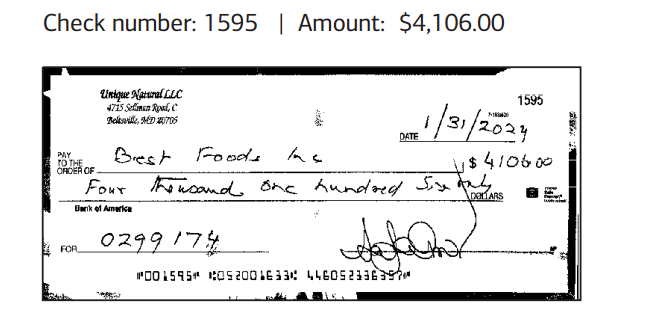 Check number: 1595 | Amount: $4,106.00
Unique Natural LLC
1595
4715 Sellman Road, C
Beltsville, MD 20705
DATE 1/31/2024
PAY TO THE ORDER OF Brest Foods Inc $ 4106.00
Four Thousand one hundred Six only DOLLARS
Bank of America
FOR 0299174